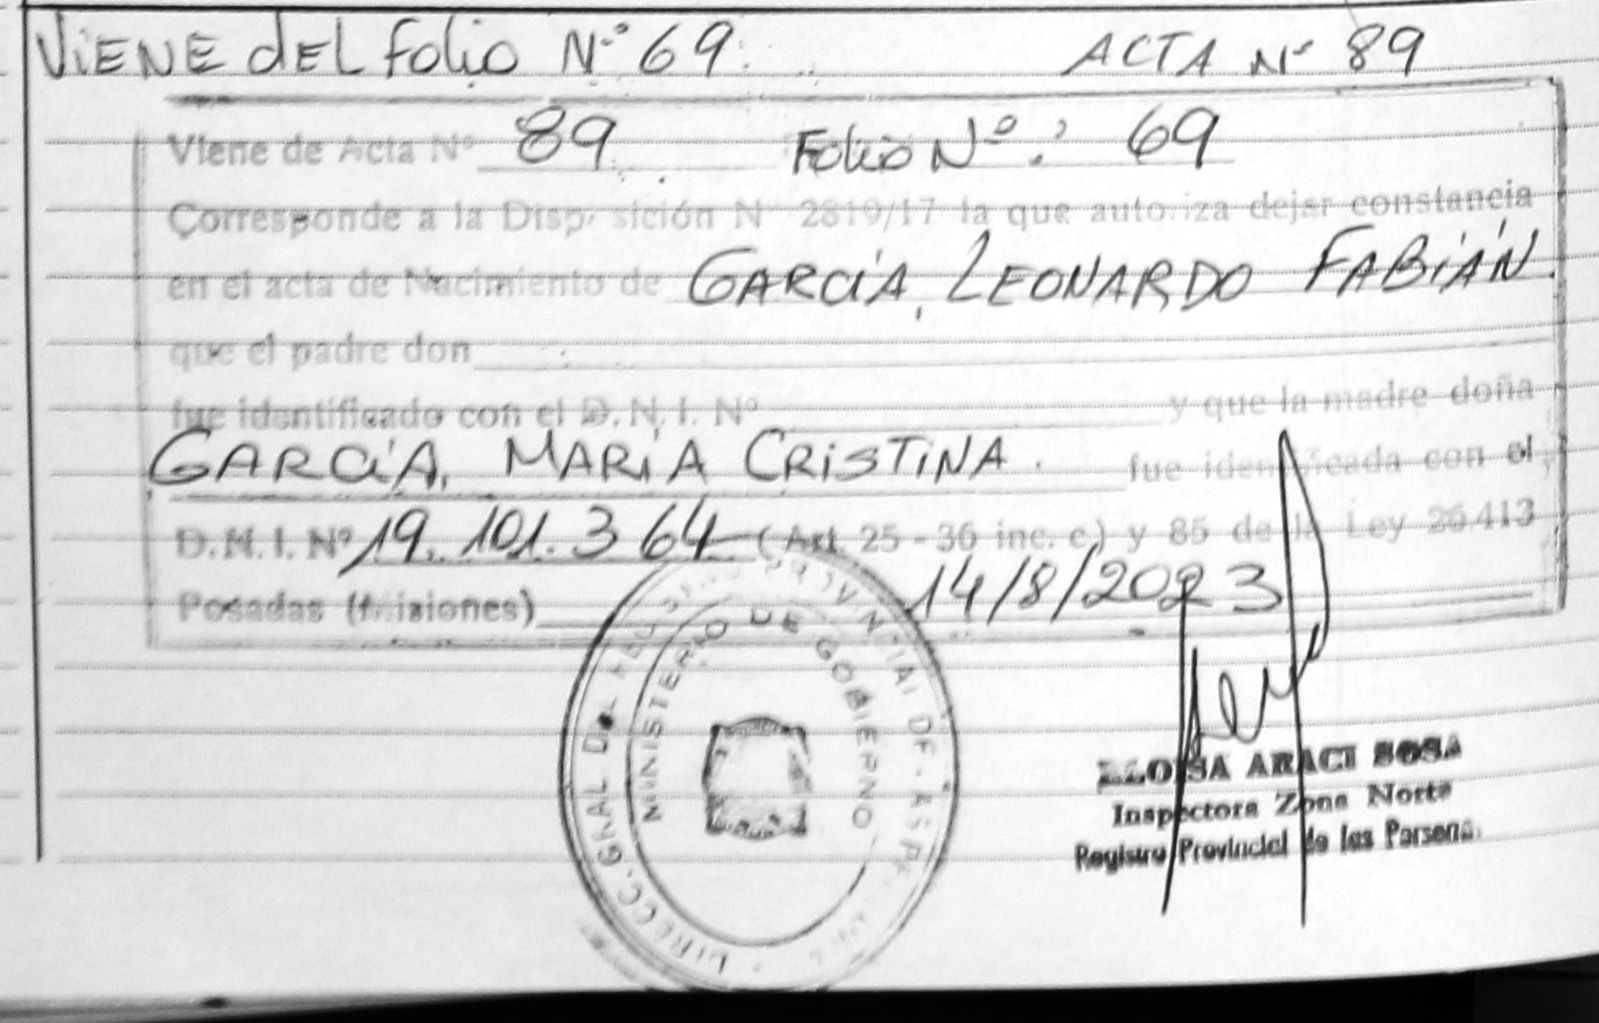 ViENE dEL folio Nº 69. ACTA Nº 89
Viene de Acta Nº 89 Folio Nº: 69
Corresponde a la Disposición Nº 2819/17 la que autoriza dejar constancia
en el acta de Nacimiento de GARCÍA, LEONARDO FABIÁN.
que el padre don
fue identificado con el D.N.I. Nº y que la madre doña
GARCÍA, MARÍA CRISTINA. fue identificada con el
D.N.I. Nº 19.101.364 (Art. 25 - 36 inc. c) y 85 de la Ley 26.413
Posadas (Misiones) 14/8/2023
DIRECC. GRAL DEL PROVINCIAL DE
MINISTERIO DE GOBIERNO
ELOISA ARACI SOSA
Inspectora Zona Norte
Registro Provincial de las Personas